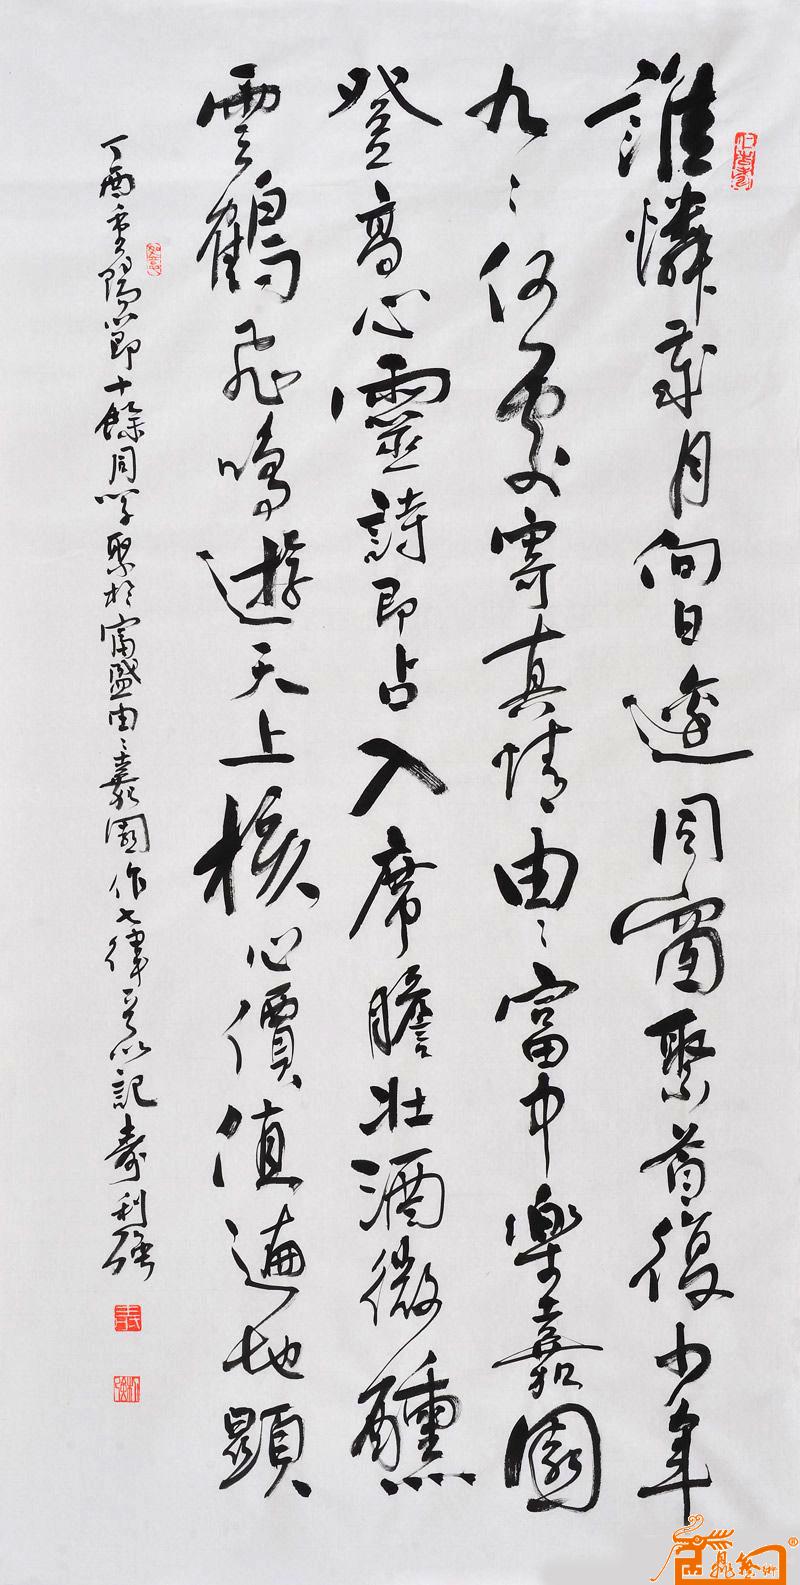 誰憐歲月向日邊同窗聚首復少年
九々何處寄真情由々富中樂嘉園
登高心靈詩即占入席膽壯酒微醺
雲鶴飛鳴遊天上核心價值遍地顯
丁酉重陽節十餘同學聚於富盛由々嘉園作七律以記壽利強